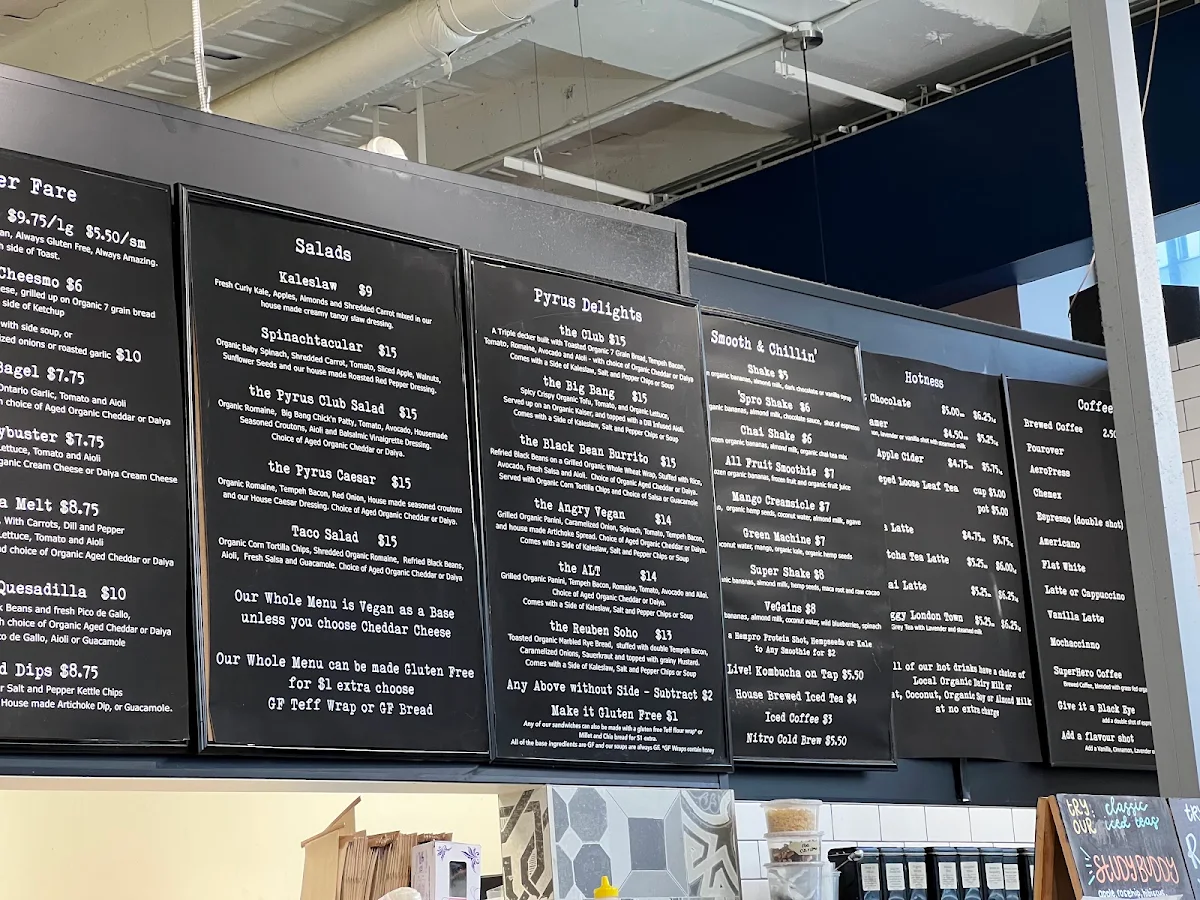 er Fare
$9.75/lg $5.50/sm
an, Always Gluten Free, Always Amazing.
h side of Toast.
Cheesmo $6
ese, grilled up on Organic 7 grain bread
side of Ketchup
with side soup, or
ized onions or roasted garlic $10
Bagel $7.75
Ontario Garlic, Tomato and Aioli
h choice of Aged Organic Cheddar or Daiya
ybuster $7.75
Lettuce, Tomato and Aioli
ganic Cream Cheese or Daiya Cream Cheese
a Melt $8.75
With Carrots, Dill and Pepper
Lettuce, Tomato and Aioli
nd choice of Aged Organic Cheddar or Daiya
Quesadilla $10
k Beans and fresh Pico de Gallo,
h choice of Organic Aged Cheddar or Daiya
co de Gallo, Aioli or Guacamole
d Dips $8.75
r Salt and Pepper Kettle Chips
House made Artichoke Dip, or Guacamole.
Salads
Kaleslaw $9
Fresh Curly Kale, Apples, Almonds and Shredded Carrot mixed in our
house made creamy tangy slaw dressing.
Spinachtacular $15
Organic Baby Spinach, Shredded Carrot, Tomato, Sliced Apple, Walnuts,
Sunflower Seeds and our house made Roasted Red Pepper Dressing.
the Pyrus Club Salad $15
Organic Romaine, Big Bang Chick'n Patty, Tomato, Avocado, Housemade
Seasoned Croutons, Aioli and Balsalmic Vinaigrette Dressing.
Choice of Aged Organic Cheddar or Daiya.
the Pyrus Caesar $15
Organic Romaine, Tempeh Bacon, Red Onion, House made seasoned croutons
and our House Caesar Dressing. Choice of Aged Organic Cheddar or Daiya.
Taco Salad $15
Organic Corn Tortilla Chips, Shredded Organic Romaine, Refried Black Beans,
Aioli, Fresh Salsa and Guacamole. Choice of Aged Organic Cheddar or Daiya
Our Whole Menu is Vegan as a Base
unless you choose Cheddar Cheese
Our Whole Menu can be made Gluten Free
for $1 extra choose
GF Teff Wrap or GF Bread
Pyrus Delights
the Club $15
A Triple decker built with Toasted Organic 7 Grain Bread, Tempeh Bacon,
Tomato, Romaine, Avocado and Aioli - with choice of Organic Cheddar or Daiya
Comes with a Side of Kaleslaw, Salt and Pepper Chips or Soup
the Big Bang $15
Spicy Crispy Organic Tofu, Tomato, and Organic Lettuce,
Served up on an Organic Kaiser, and topped with a Dill Infused Aioli.
Comes with a Side of Kaleslaw, Salt and Pepper Chips or Soup
the Black Bean Burrito $15
Refried Black Beans on a Grilled Organic Whole Wheat Wrap, Stuffed with Rice,
Avocado, Fresh Salsa and Aioli. Choice of Organic Aged Cheddar or Daiya.
Served with Organic Corn Tortilla Chips and Choice of Salsa or Guacamole
the Angry Vegan $14
Grilled Organic Panini, Caramelized Onion, Spinach, Tomato, Tempeh Bacon,
and house made Artichoke Spread. Choice of Aged Organic Cheddar or Daiya.
Comes with a Side of Kaleslaw, Salt and Pepper Chips or Soup
the ALT $14
Grilled Organic Panini, Tempeh Bacon, Romaine, Tomato, Avocado and Aioli.
Choice of Aged Organic Cheddar or Daiya.
Comes with a Side of Kaleslaw, Salt and Pepper Chips or Soup
the Reuben Soho $13
Toasted Organic Marbled Rye Bread, stuffed with double Tempeh Bacon,
Caramelized Onions, Sauerkraut and topped with grainy Mustard.
Comes with a Side of Kaleslaw, Salt and Pepper Chips or Soup
Any Above without Side - Subtract $2
Make it Gluten Free $1
Any of our sandwiches can also be made with a gluten free Teff flour wrap* or
Millet and Chia bread for $1 extra.
All of the base ingredients are GF and our soups are always GF. *GF Wraps contain honey
Smooth & Chillin'
Shake $5
organic bananas, almond milk, dark chocolate or vanilla syrup
'Spro Shake $6
ganic bananas, almond milk, chocolate sauce, shot of espresso
Chai Shake $6
ozen organic bananas, almond milk, organic chai tea mix.
All Fruit Smoothie $7
ozen organic bananas, frozen fruit and organic fruit juice
Mango Creamsicle $7
organic hemp seeds, coconut water, almond milk, agave
Green Machine $7
conut water, mango, organic kale, organic hemp seeds
Super Shake $8
nic bananas, almond milk, hemp seeds, maca root and raw cacao
VeGains $8
bananas, almond milk, coconut water, wild blueberries, spinach
a Hempro Protein Shot, Hempseeds or Kale
to Any Smoothie for $2
Live! Kombucha on Tap $5.50
House Brewed Iced Tea $4
Iced Coffee $3
Nitro Cold Brew $5.50
Hotness
Chocolate $5.00 $6.25
amer $4.50 $5.25
, lavender or vanilla shot with steamed milk
Apple Cider $4.75 $5.75
ped Loose Leaf Tea cup $1.00
pot $5.00
a Latte $4.75 $5.75
tcha Tea Latte $5.25 $6.00
ai Latte $5.25 $6.25
ggy London Town $5.25 $6.25
Grey Tea with Lavender and steamed milk
ll of our hot drinks have a choice of
Local Organic Dairy Milk or
at, Coconut, Organic Soy or Almond Milk
at no extra charge
Coffee
Brewed Coffee 2.50
Pourover
AeroPress
Chemex
Espresso (double shot)
Americano
Flat White
Latte or Cappuccino
Vanilla Latte
Mochaccino
SuperHero Coffee
Brewed Coffee, blended with grass fed orga
Give it a Black Eye
add a double shot of esp
Add a flavour shot
Add a Vanilla, Cinnamon, Lavender
TRY OUR classic
iced teas
STUDY BUDDY
apple, rosehip, hibiscus,